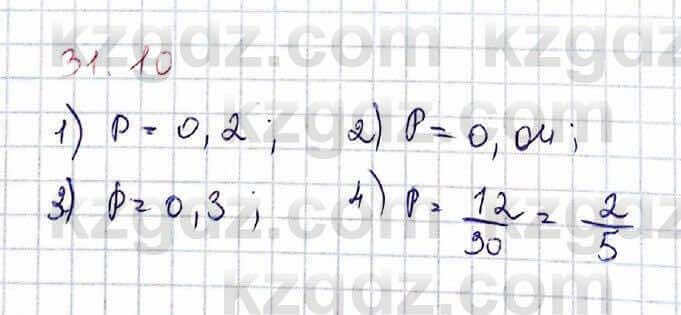 kzgdz.com kzgdz.com
31.10
1) P = 0,2; 2) P = 0,04;
kzgdz.com kzgdz.com
3) P = 0,3; 4) P = 12/30 = 2/5
kzgdz.com kzgdz